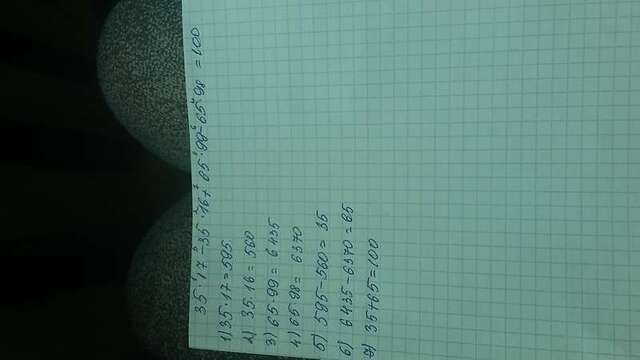 35·17-35·16+65·99-65·98 =100
1) 35·17=595
2) 35·16= 560
3) 65·99= 6435
4) 65·98= 6370
5) 595-560= 35
6) 6435-6370=65
7) 35+65=100